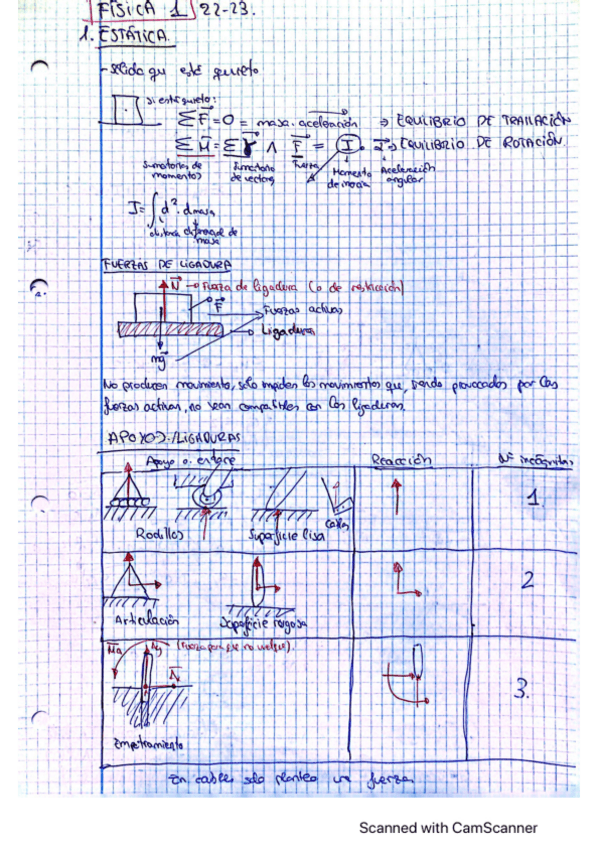 FÍSICA 1 22-23.
1. ESTÁTICA.
- sólido que esté quieto
Si está quieto:
ΣF⃗ = 0 = masa · aceleración ⇒ EQUILIBRIO DE TRASLACIÓN
ΣM⃗ = Σr⃗ ∧ F⃗ = I · α⃗ ⇒ EQUILIBRIO DE ROTACIÓN
Sumatorios de momentos
Sumatorio de vectores
Fuerza
Momento de inercia
Aceleración angular
I = ∫ d² · dmasa
distancia diferencial de masa
FUERZAS DE LIGADURA
N⃗ → Fuerza de ligadura (o de restricción)
F⃗
Fuerzas activas
Ligadura
mg⃗
No producen movimiento, solo impiden los movimientos que, siendo provocados por las
fuerzas activas, no sean compatibles con las ligaduras.
APOYOS/LIGADURAS
Apoyo o enlace
Reacción
Nº incógnitas
Rodillos
Superficie lisa
Cables
1
Articulación
Superficie rugosa
2
(Fuerza para que no vuelque).
N⃗
3.
Empotramiento
En cables solo planteo una fuerza
Scanned with CamScanner